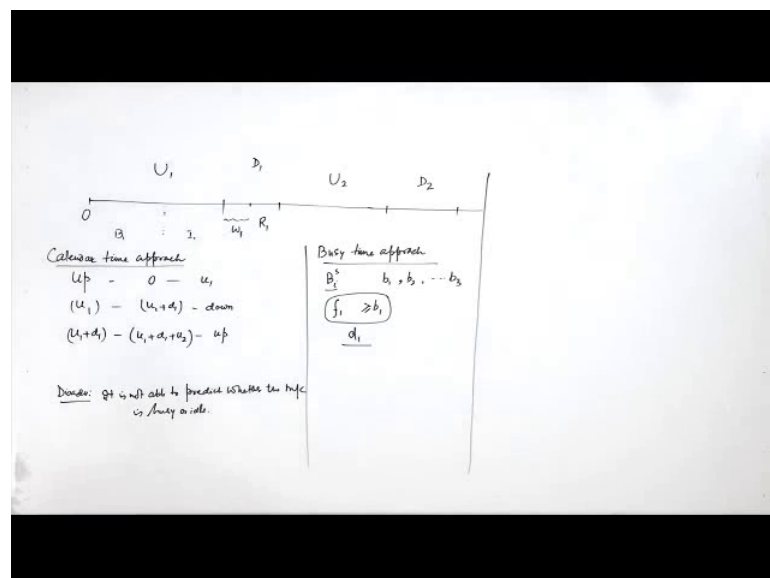 U₁ D₁ U₂ D₂
0
B₁ I₁ W₁ R₁
Calendar time approach
Up - 0 — u₁
(u₁) - (u₁+d₁) - down
(u₁+d₁) - (u₁+d₁+u₂) - up
Disadv: It is not able to predict whether the m/c
is busy or idle.
Busy time approach
B₁ˢ b₁, b₂, ... b₃
f₁ ≥ b₁
d₁